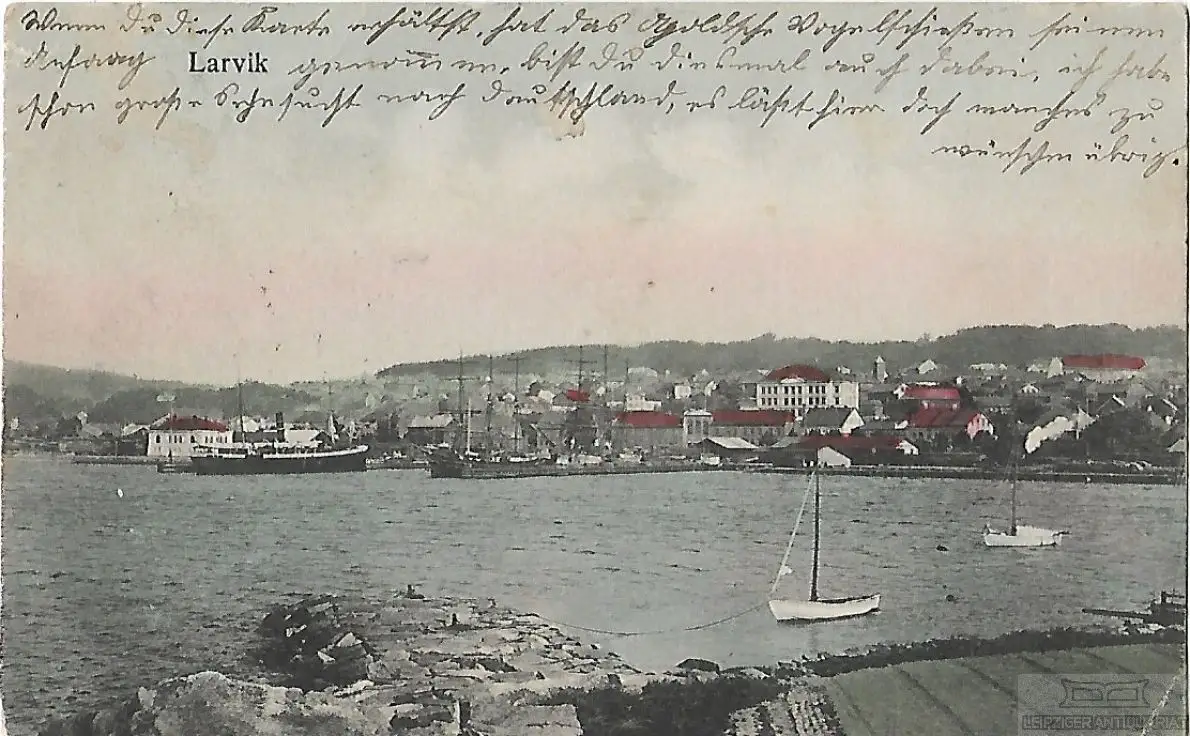 Wenn Du diese Karte erhältst, hat das Apoldsche Vogelschießen seinen
Anfang Larvik genommen, bist Du diesmal auch dabei, ich habe
schon große Sehnsucht nach Deutschland, es läßt hier doch manches zu
wünschen übrig.
LEIPZIGER ANTIQUARIAT